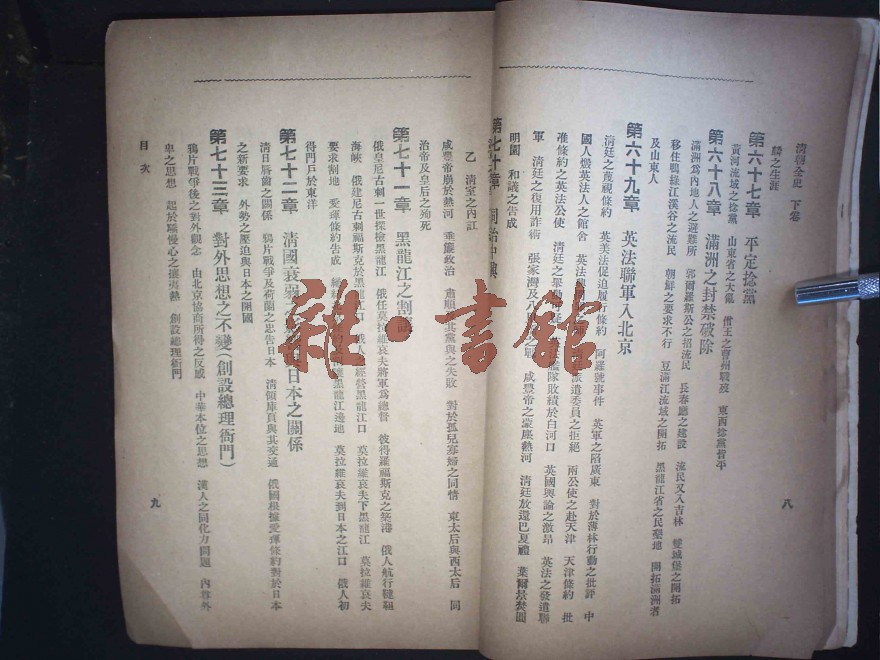 清朝全史 下卷
驕之生涯
第六十七章 平定捻黨
黃河流域之捻黨 山東省之大亂 僧王之曹州戰歿 東西捻黨皆平
第六十八章 滿洲之封禁破除
滿洲爲內地人之避難所 郭爾羅斯公之招流民 長春廳之建設 流民又入吉林 雙城堡之開拓
移住鴨綠江溪谷之流民 朝鮮之要求不行 豆滿江流域之開拓 黑龍江省之民墾地 開拓滿洲者
及山東人
第六十九章 英法聯軍入北京
清廷之蔑視條約 英美法促迫履行條約 阿羅號事件 英軍之陷廣東 對於薄林行動之批評 中
國人燬英法人之館舍 派遣委員之拒絕 兩公使之赴天津 天津條約 批
准條約之英法公使 清廷之 艦隊敗績於白河口 英國輿論之激昂 英法之發遣聯
軍 清廷之復用詐術 張家灣及八 戰 咸豐帝之蒙塵熱河 清廷放還巴夏禮 葉爾景焚圓
明園 和議之告成
第七十章 同治中興
乙 清室之內訌
咸豐帝崩於熱河 垂簾政治 肅順 其黨與之失敗 對於孤兒寡婦之同情 東太后與西太后 同
治帝及皇后之殉死
第七十一章 黑龍江之割讓
俄皇尼古剌一世探檢黑龍江 俄任莫拉維哀夫將軍爲總督 彼得羅福斯克之築港 俄人航行韃靼
海峽 俄建尼古剌福斯克於黑龍江口 俄人 經營黑龍江口 莫拉維哀夫下黑龍江 莫拉維哀夫
要求割地 愛琿條約告成 黑龍江邊地 莫拉維哀夫到日本之江口 俄人初
得門戶於東洋
第七十二章 清國衰弱 與日本之關係
清日唇齒之關係 鴉片戰爭及荷蘭之忠告日本 清領庫頁與其交通 俄國根據愛琿條約對於日本
之新要求 外勢之壓迫與日本之開國
第七十三章 對外思想之不變(創設總理衙門)
鴉片戰爭後之對外觀念 由北京協商所得之反感 中華本位之思想 漢人之同化力問題 內尊外
卑之思想 起於驕慢心之攘夷熱 創設總理衙門
目次
八
九
雜·書館